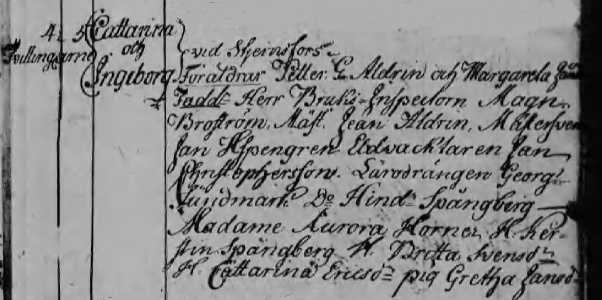 4. 5 Cattarina
Tvillingarne och } vid Steinsfors
Ingeborg Föräldrar Petter G. Aldrin och Margareta
Fadd: Herr Bruks-Inspectorn Magn.
Broström, Mäst. Jean Aldrin, Mäster
Jan Espengren Eldvacktaren Jan
Christophersson. Lärodrängen Georg
Lundmark Do Hind: Spångberg
Madame Aurora Horner, H. Ker-
stin Spångberg H. Britta Svensd:
H. Cattarina Ericsd: pig Gretha Jansd: